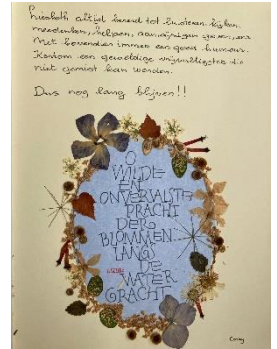 Liesbeth altijd bereid tot luisteren, kijken
meedenken, helpen, aanwijzingen geven, enz
Met bovendien immer een goed humeur.
Kortom een geweldige vrijwilligster die
niet gemist kan worden.
Dus nog lang blijven!!
O
WILDE
EN
ONVERVALSTE
PRACHT
DER
BLOMMEN
LANGS
DE
WATER
GRACHT
Corry